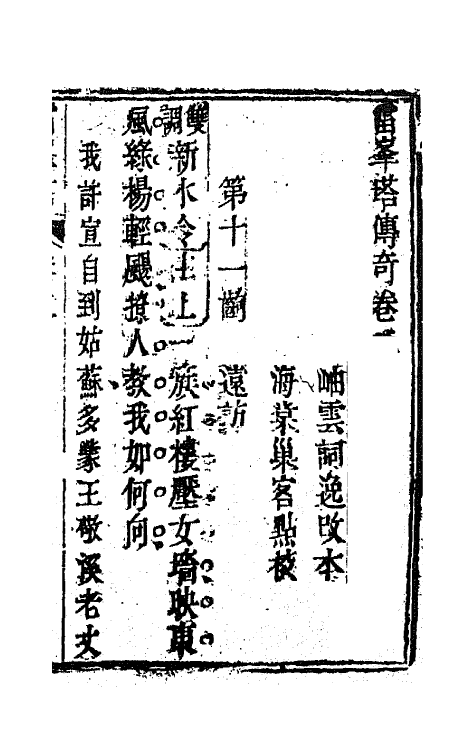 雷峯塔傳奇卷二
岫雲詞逸改本
海棠巢客點校
第十一齣　遠訪
雙調新水令生上一簇紅樓壓女墻映東
風綠楊輕颺撩人教我如何向
我許宣自到姑蘇多蒙王敬溪老丈